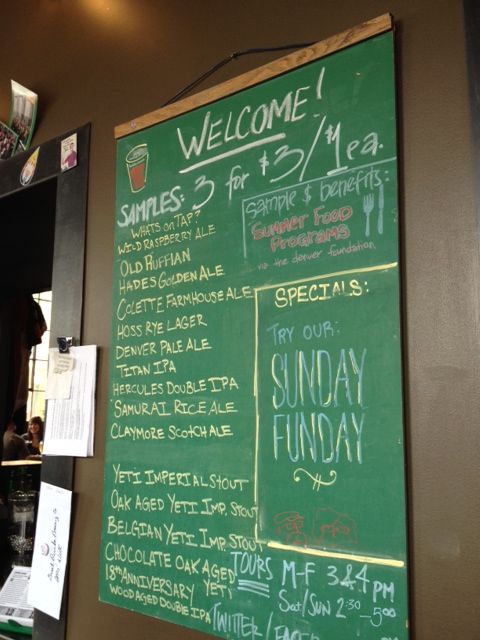 WELCOME!
SAMPLES: 3 for $3/$1 ea.
WHATS on TAP?
WILD RASPBERRY ALE
OLD RUFFIAN
HADES GOLDEN ALE
COLETTE FARMHOUSE ALE
HOSS RYE LAGER
DENVER PALE ALE
TITAN IPA
HERCULES DOUBLE IPA
SAMURAI RICE ALE
CLAYMORE SCOTCH ALE
YETI IMPERIAL STOUT
OAK AGED YETI IMP. STOUT
BELGIAN YETI IMP. STOUT
CHOCOLATE OAK AGED YETI
18th ANNIVERSARY
WOOD AGED DOUBLE IPA
Sample $ benefits:
Summer Food
Programs
via the denver foundation
SPECIALS:
TRY OUR:
SUNDAY
FUNDAY
TOURS M-F 3&4 PM
Sat/SUN 2:30-5:00
TWITTER/